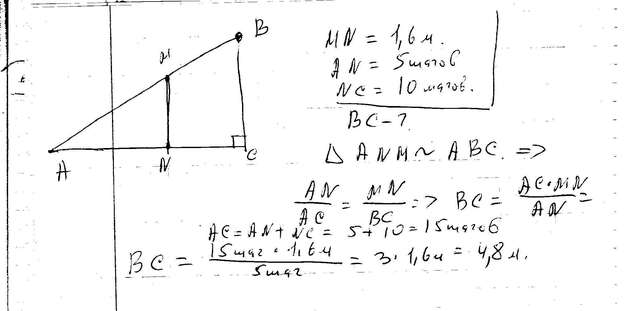 B
M
A
N
C
MN = 1,6 м.
AN = 5 шагов
NC = 10 шагов.
BC - ?
△ ANM ~ ABC. =>
AN/AC = MN/BC => BC = AC·MN/AN =
AC = AN + NC = 5 + 10 = 15 шагов
BC = 15 шаг · 1,6 м/5 шаг = 3 · 1,6 м = 4,8 м.